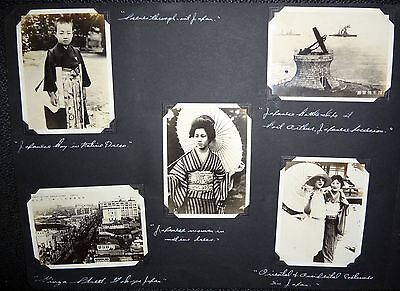 "Scenes throughout Japan."
"Japanese Boy in Native Dress"
"Japanese Battleships at
Port Arthur, Japanese Possession."
"Japanese woman in
native dress."
"Ginza Street, Tokyo, Japan"
"Oriental & Occidental Costumes
in Japan."